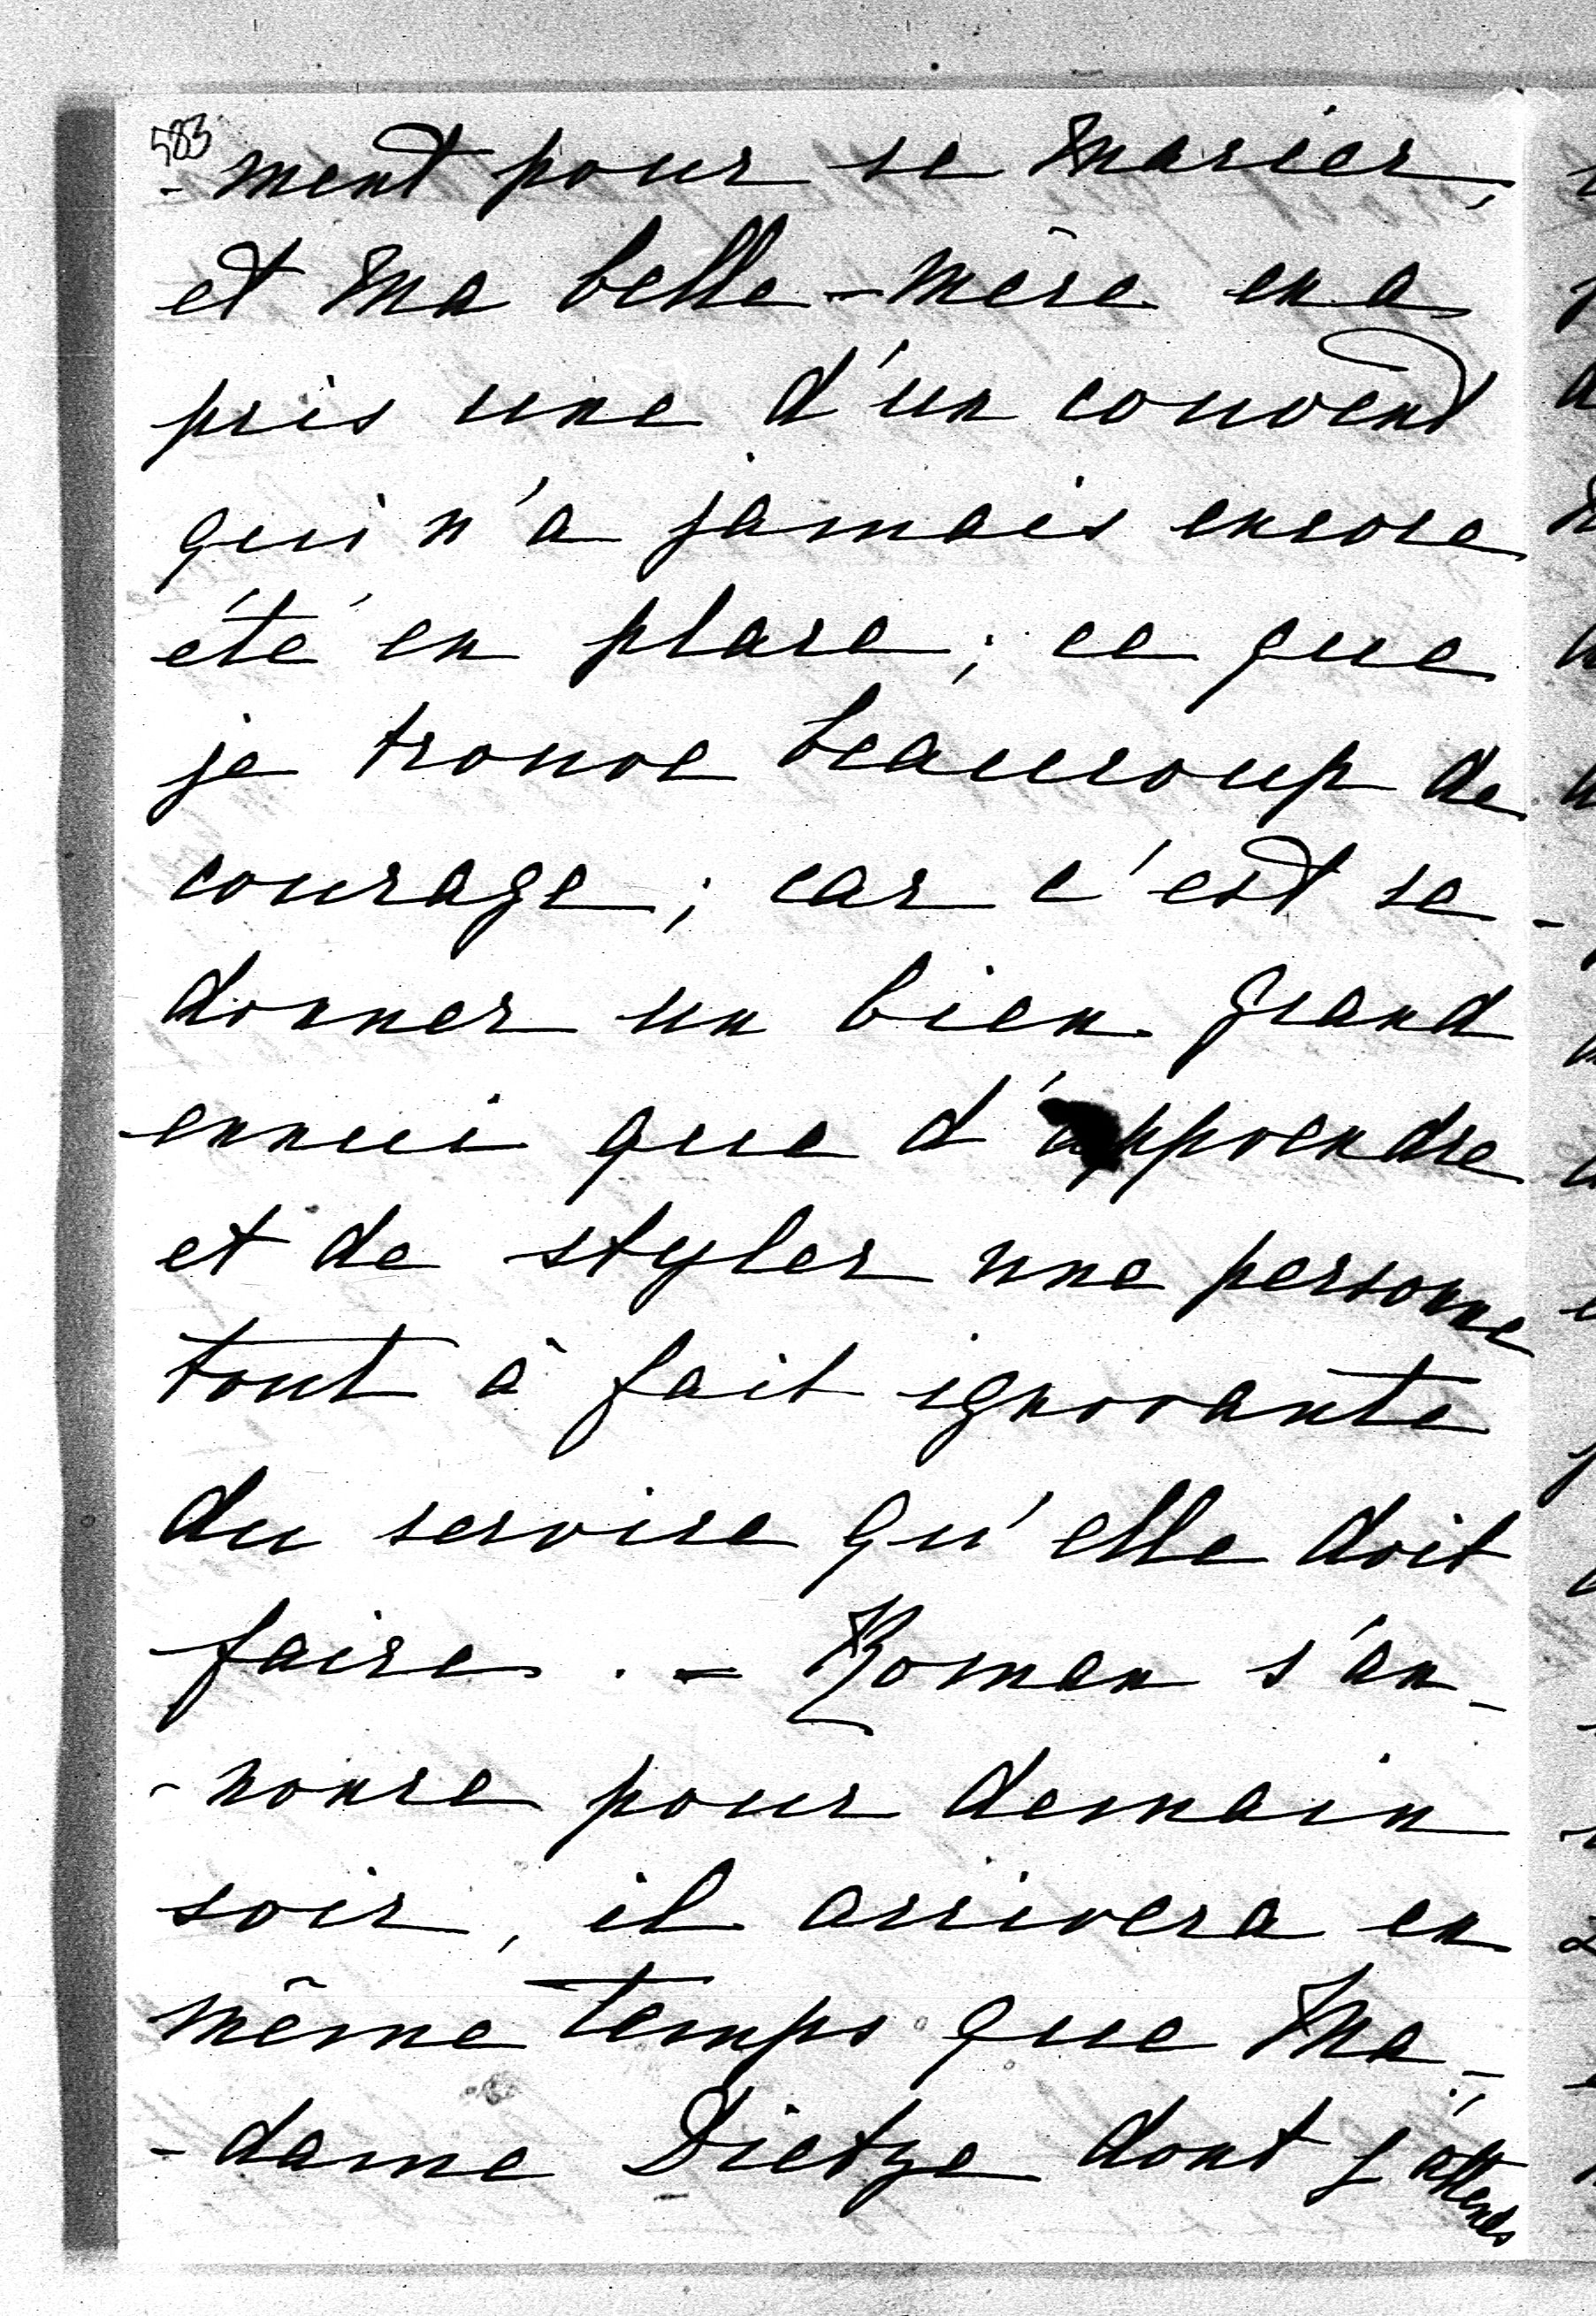 583
-ment pour se marier,
et ma belle-mère en a
pris une d'un couvent
qui n'a jamais encore
été en place ; ce que
je trouve beaucoup de
courage ; car c'est se
donner un bien grand
ennui que d'apprendre
et de styler une personne
tout à fait ignorante
du service qu'elle doit
faire. - Roman s'an-
-nonce pour demain
soir, il arrivera en
même temps que Ma-
-dame Dietze dont j'attends